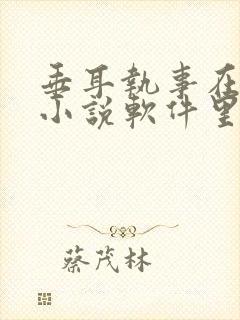 垂耳執事在
小說軟件里
蔡茂林